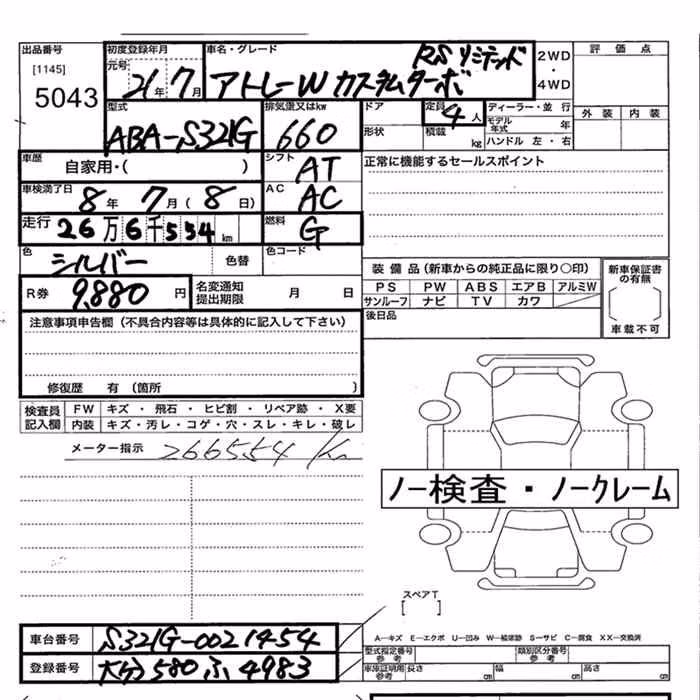 出品番号 初度登録年月 車名・グレード RS リミテッド 2WD 評価点
[1145] 元号 21年 7月 アトレーW カスタムターボ ・
5043 4WD
型式 排気量又はkw ドア 定員 4人 ディーラー・並行 外装 内装
ABA-S321G 660 形状 積載 kg モデル年式 年
ハンドル 左・右
車歴 自家用・( ) シフト AT 正常に機能するセールスポイント
車検満了日 8年 7月(8日) AC AC
走行 26万6千554km 燃料 G
色 シルバー 色替 色コード
装備品(新車からの純正品に限り○印) 新車保証書の有無
R券 9,880円 名変通知提出期限 月 日 PS PW ABS エアB アルミW
サンルーフ ナビ TV カワ 車載不可
注意事項申告欄(不具合内容等は具体的に記入して下さい) 後日品
修復歴 有(箇所 )
検査員記入欄 FW キズ・飛石・ヒビ割・リペア跡・X要
内装 キズ・汚レ・コゲ・穴・スレ・キレ・破レ
メーター指示 266554 Km
ノー検査・ノークレーム
スペアT
[ ]
車台番号 S321G-0021454 A―キズ E―エクボ U―凹み W―補修跡 S―サビ C―腐食 XX―交換済
型式指定番号 参考 類別区分番号 参考
登録番号 大分 580 ふ 4983 車庫証明用 参考 長さ cm 幅 cm 高さ cm